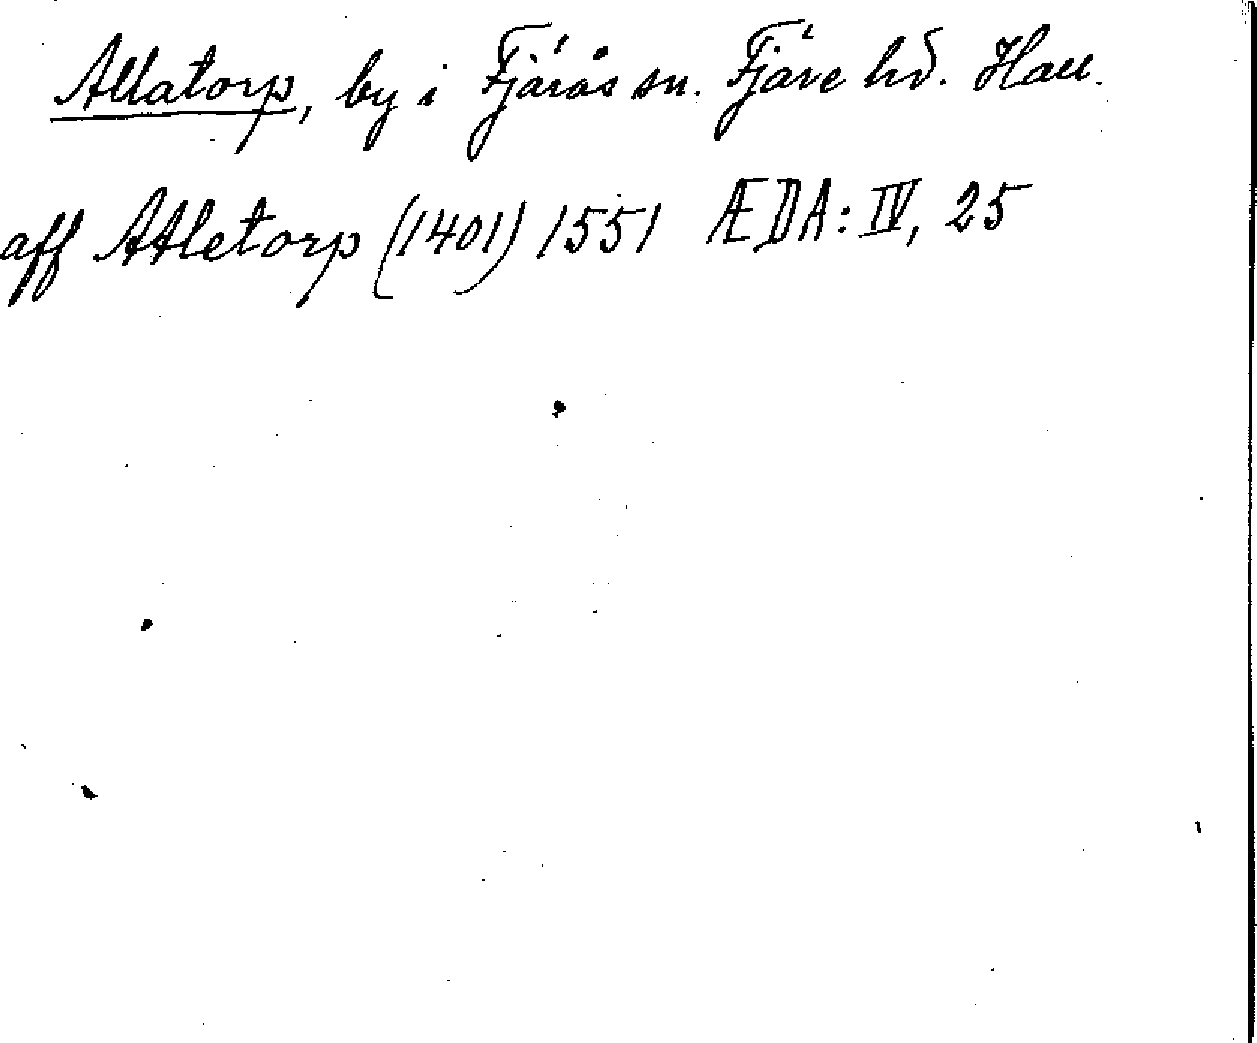 Allatorp, by i Fjärås sn. Fjäre hd. Hall.
aff Atletorp (1401) 1551 ÆDA: IV, 25